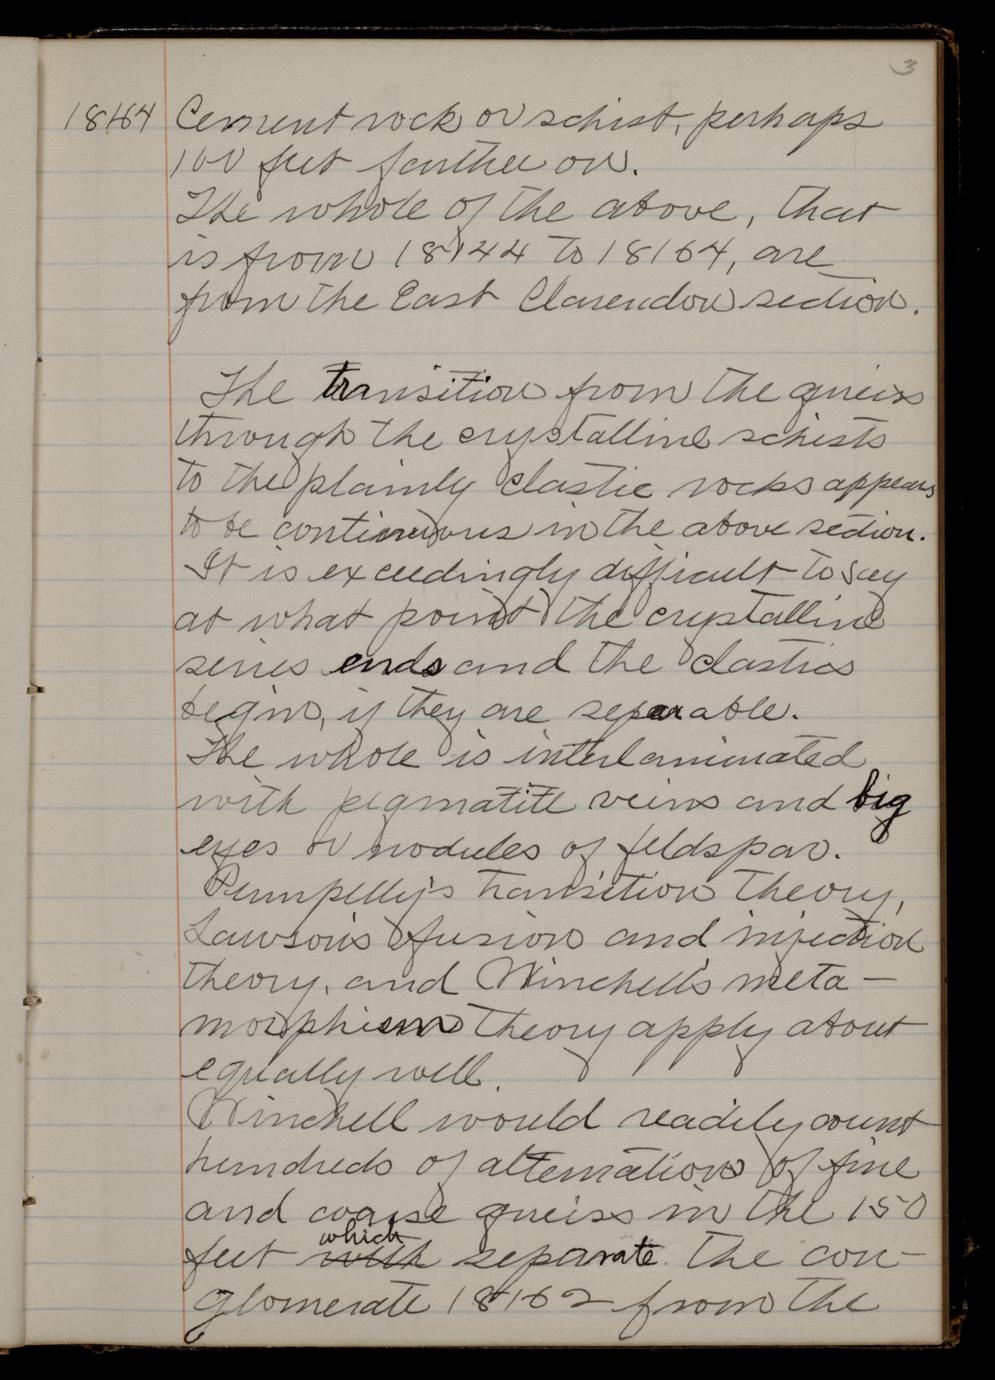 3
18164 Cement rock or schist, perhaps
100 feet farther on.
The whole of the above, that
is from 18144 to 18164, are
from the East Clarendon section.
The transition from the gneiss
through the crystalline schists
to the plainly clastic rocks appears
to be continuous in the above section.
It is exceedingly difficult to say
at what point the crystalline
series ends and the clastics
begin, if they are separable.
The whole is interlaminated
with pegmatite veins and big
eyes or nodules of feldspar.
Pumpelly's transition theory,
Lawson's fusion and injection
theory, and Winchell's meta-
morphism theory apply about
equally well.
Winchell would readily count
hundreds of alternations of fine
and coarse gneiss in the 150
feet with which separate the con-
glomerate 18162 from the